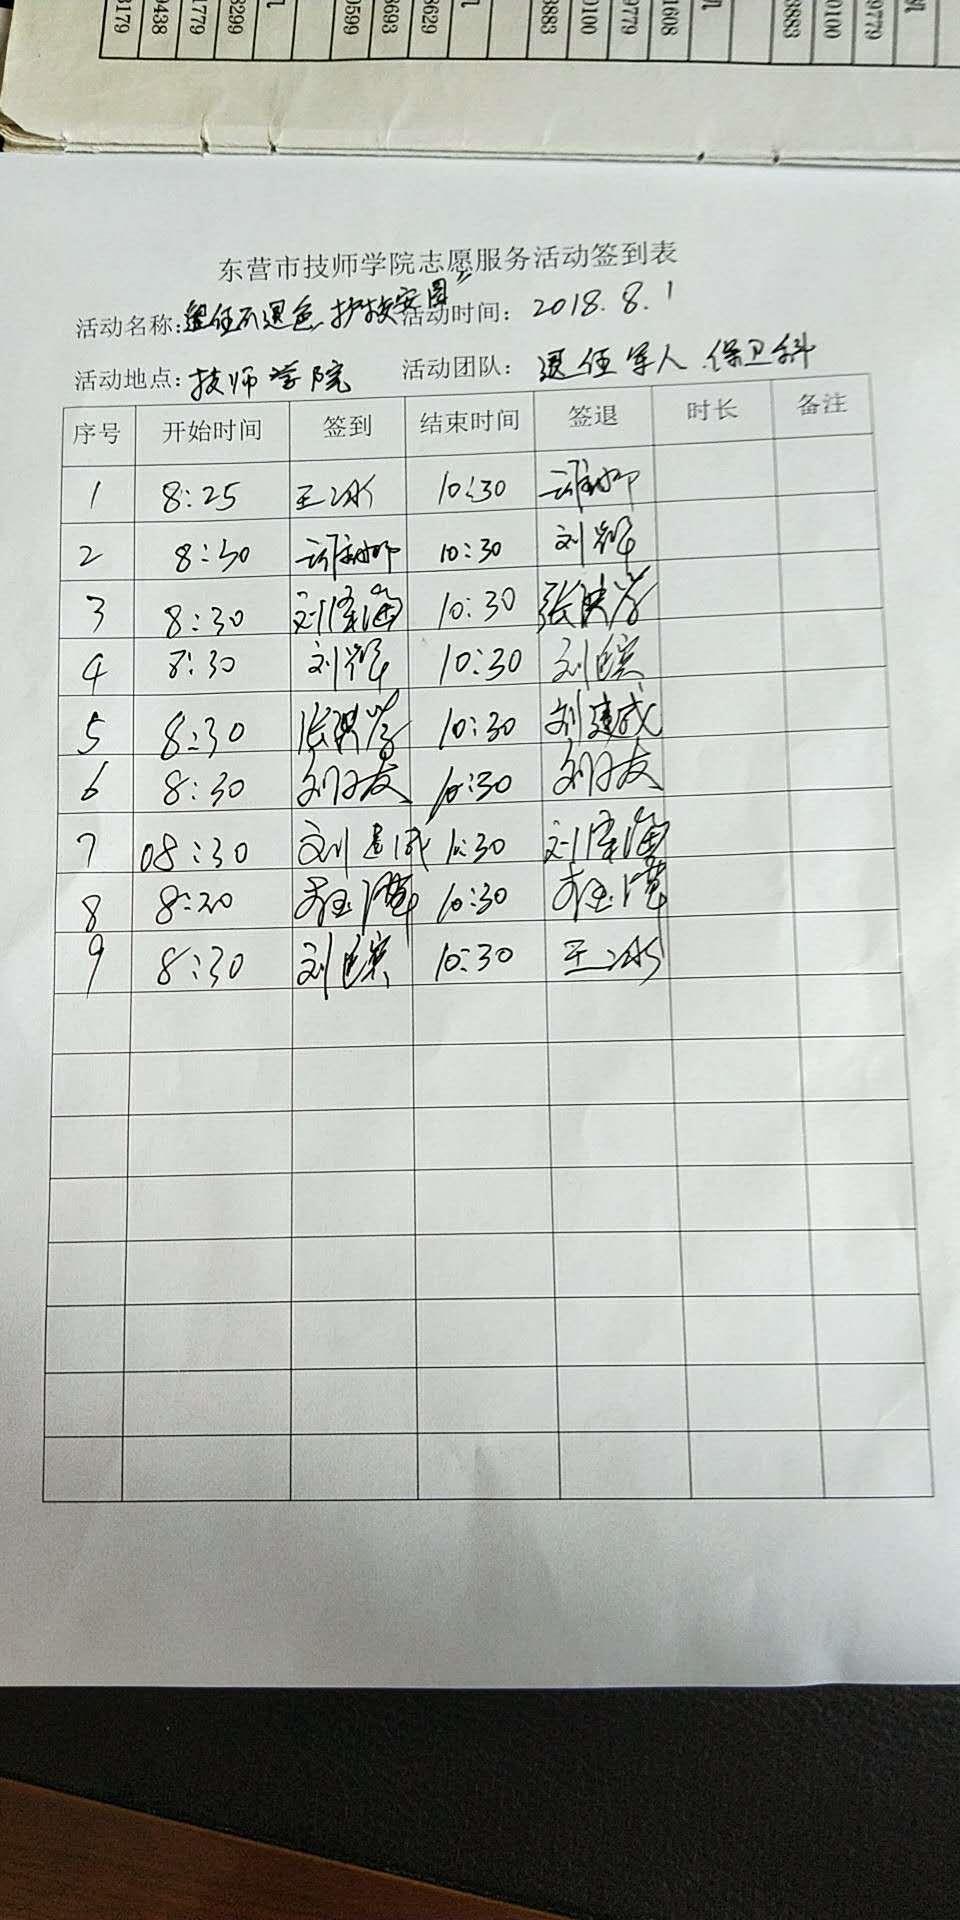 3179
9438
1779
3299
机
0599
8693
8629
机
3883
0100
9779
1608
机
3883
0100
9779
机
东营市技师学院志愿服务活动签到表
活动名称: 退伍不退色 护校安园" 活动时间: 2018.8.1
活动地点: 技师学院 活动团队: 退伍军人 保卫科
序号 开始时间 签到 结束时间 签退 时长 备注
1 8:25 王冰 10:30
2 8:30 10:30 刘
3 8:30 刘 海 10:30 张洪学
4 8:30 刘 10:30 刘
5 8:30 张洪学 10:30 刘建成
6 8:30 刘子友 10:30 刘子友
7 08:30 刘建成 10:30 刘 海
8 8:30 10:30
9 8:30 刘 10:30 王冰